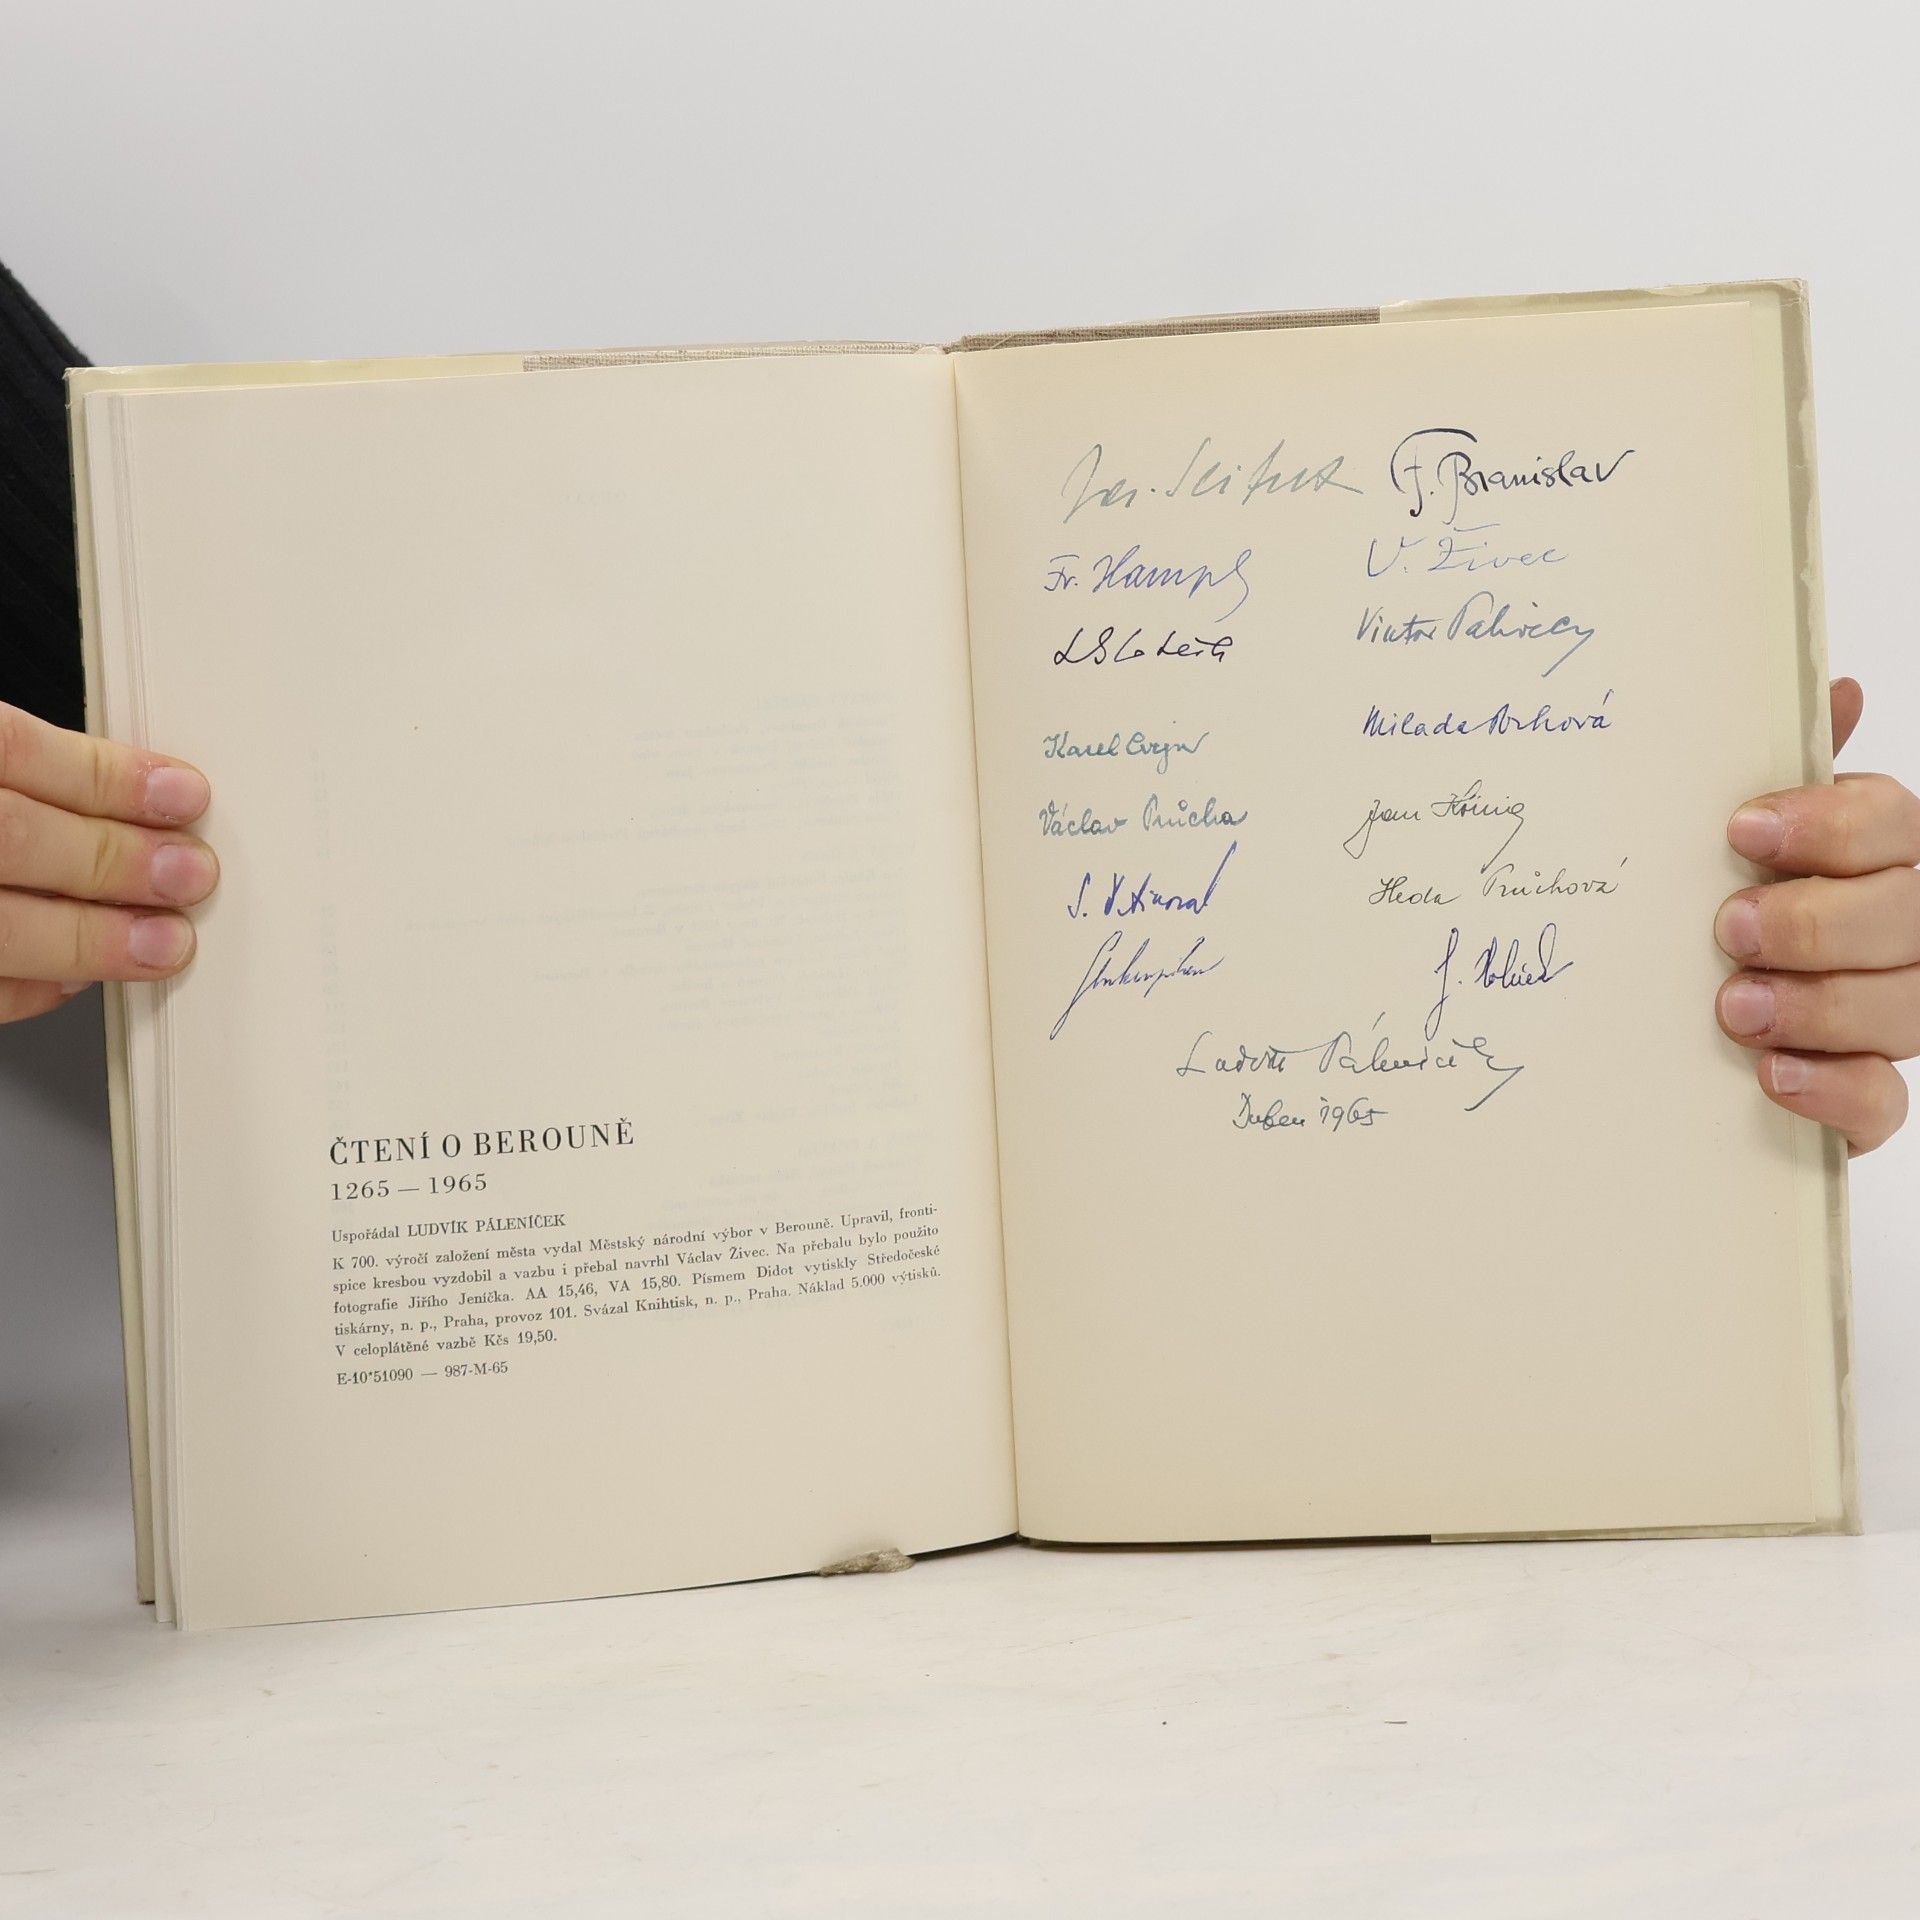 ČTENÍ O BEROUNĚ
1265 — 1965
Uspořádal LUDVÍK PÁLENÍČEK
K 700. výročí založení města vydal Městský národní výbor v Berouně. Upravil, fronti-
spice kresbou vyzdobil a vazbu i přebal navrhl Václav Živec. Na přebalu bylo použito
fotografie Jiřího Jeníčka. AA 15,46, VA 15,80. Písmem Didot vytiskly Středočeské
tiskárny, n. p., Praha, provoz 101. Svázal Knihtisk, n. p., Praha. Náklad 5.000 výtisků.
V celoplátěné vazbě Kčs 19,50.
E-10*51090 — 987-M-65
Jar. Seifert F. Branislav
Fr. Hampl V. Živec
Viktor Palivec
Karel Cvejn Milada
Václav Průcha Jan König
S. Heda Průchová
J.
Ludvík Páleníček
Duben 1965